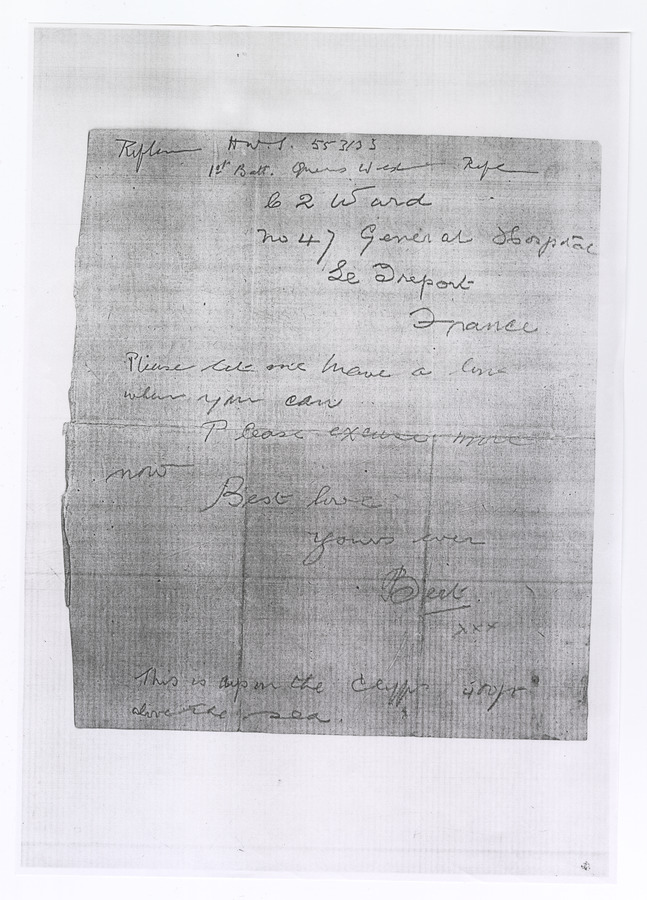 Rifleman H W S. 553133
1st Batt. Queens West Rifl
C 2 Ward
No 47 General Hospital
Le Treport
France
Please let me have a line
when you can
Please excuse more
now
Best love
Yours ever
Bert
xxx
This is up on the Cliffs 400ft
above the sea.